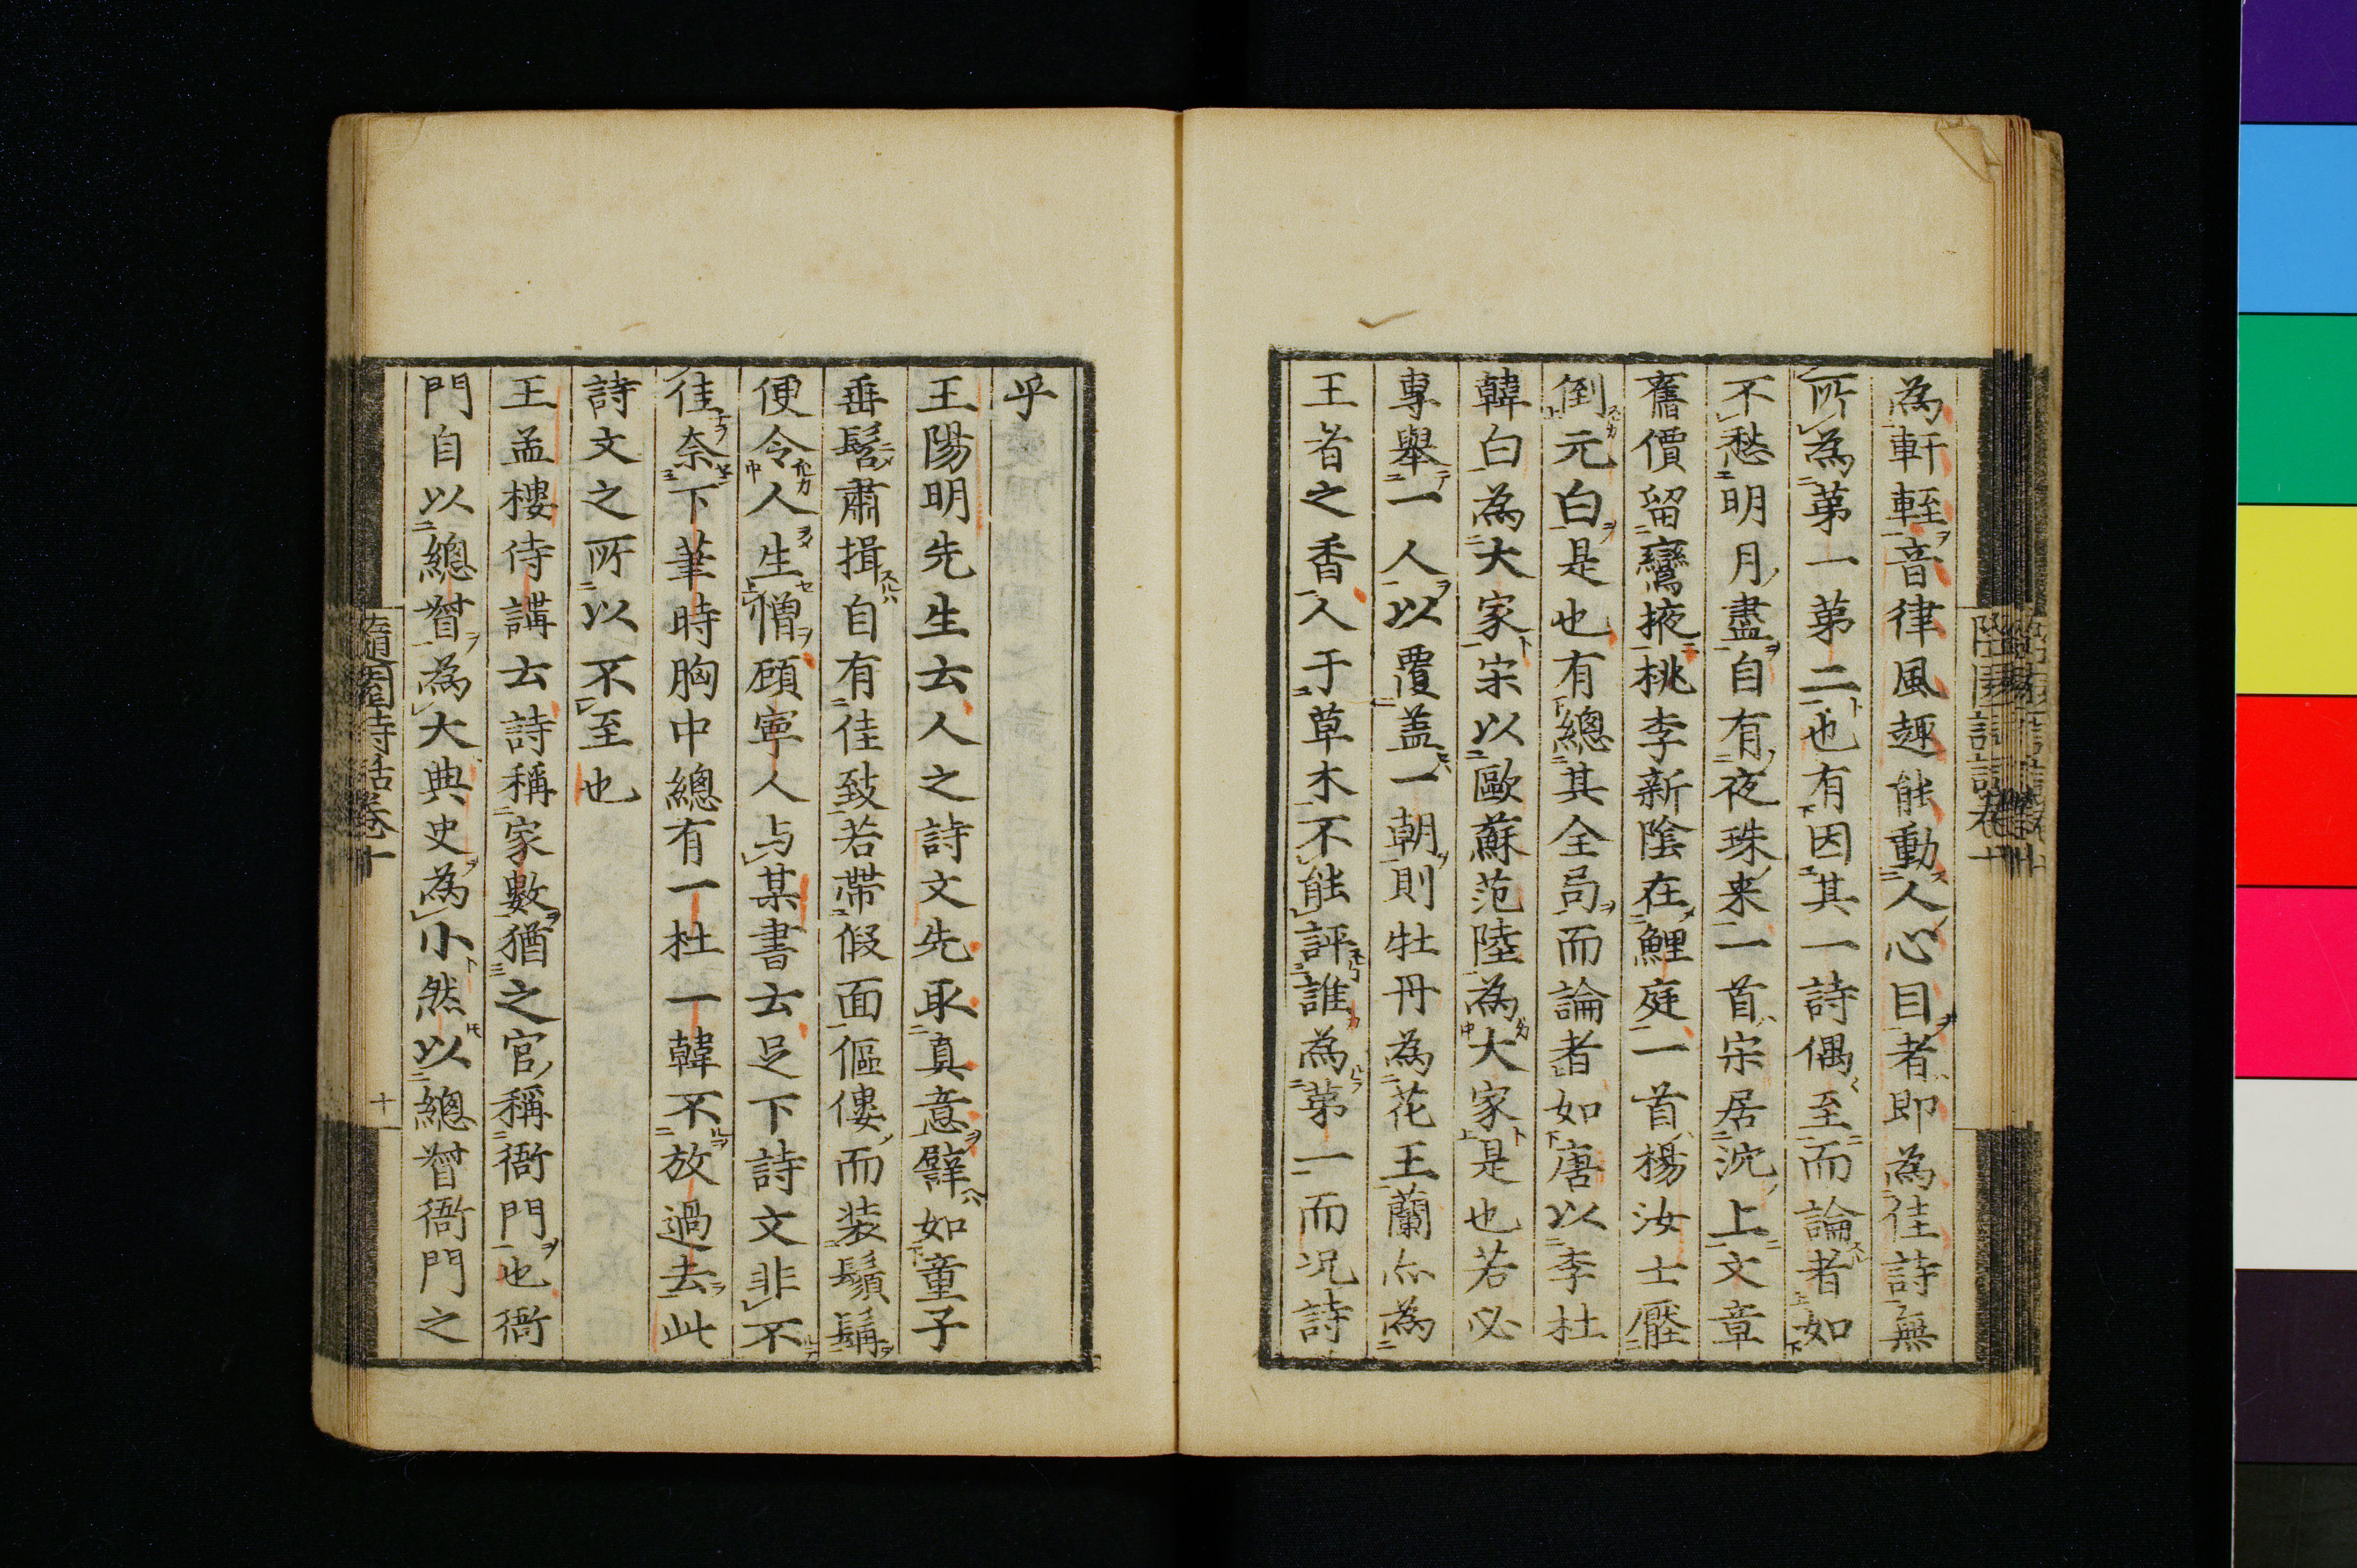 為軒輊音律風趣能動人心目者即為佳詩無
所為第一第二也有因其一詩偶至而論者如
不愁明月盡自有夜珠来一首宋居沈上文章
舊價留鸞掖桃李新陰在鯉庭一首楊汝士壓
倒元白是也有總其全局而論者如唐以李杜
韓白為大家宋以歐蘇范陸為大家是也若必
專舉一人以覆盖一朝則牡丹為花王蘭亦為
王者之香人于草木不能評誰為第一而况詩
乎
王陽明先生云人之詩文先取真意譬如童子
垂髫肅揖自有佳致若帶假面傴僂而装鬚髯
便令人生憎顧寧人与某書云足下詩文非不
佳奈下筆時胸中總有一杜一韓不放過去此
詩文之所以不至也
王孟樓侍講云詩稱家數猶之官稱衙門也衙
門自以總督為大典史為小然以總督衙門之
隨園詩話卷十
十